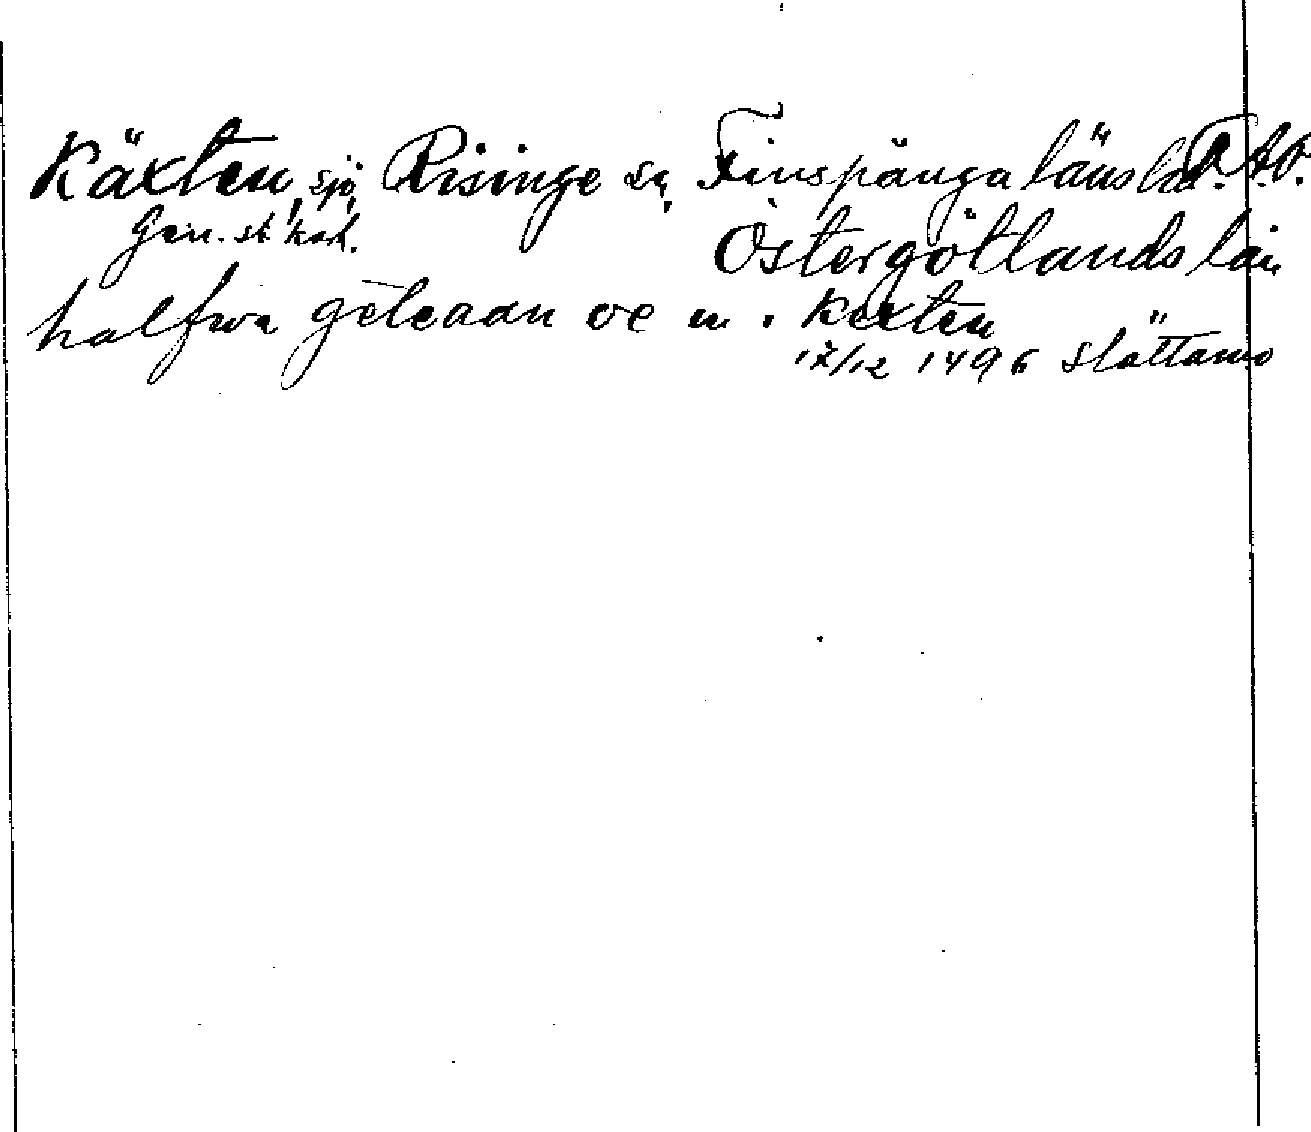 Käxten, sjö, Risinge sn, Finspånga läns hd R.A.P.
Gen. st. kart. Östergötlands län
halfwa geteaan oc n. Kexten
17/12 1496 Slättamo